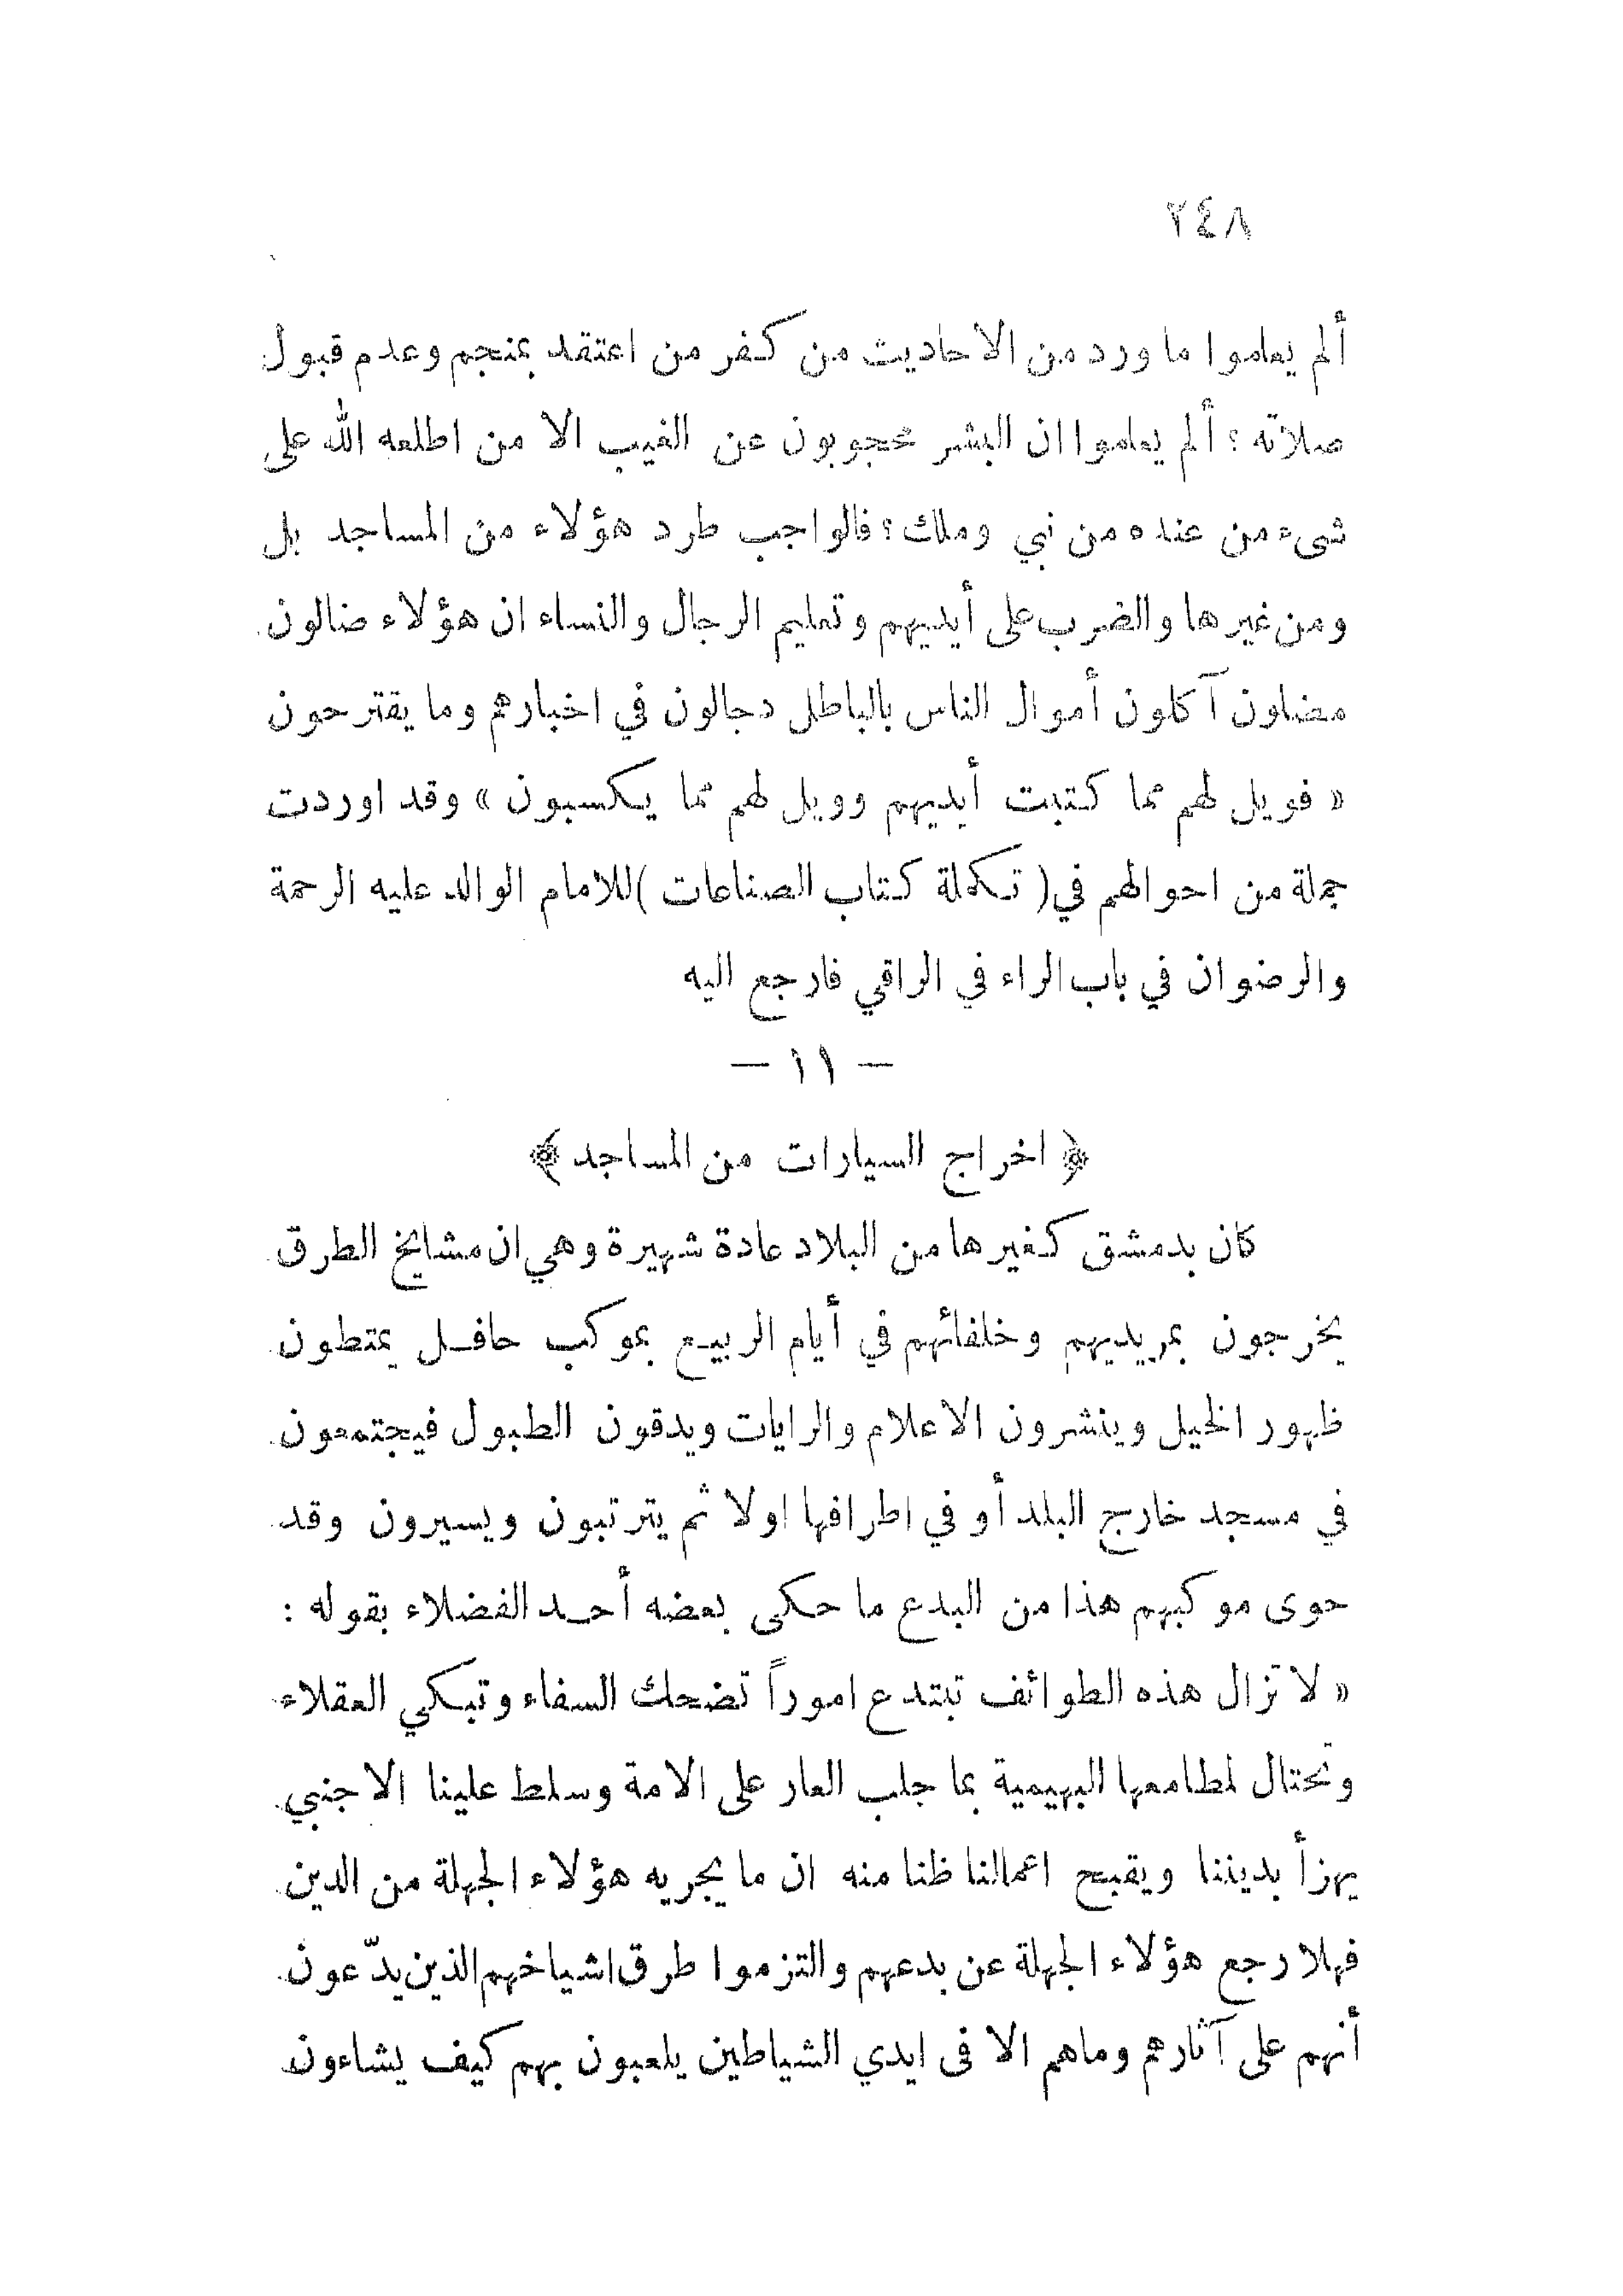 ٢٤٨
ألم يعلموا ما ورد من الاحاديث من كفر من اعتقد بمنجم وعدم قبول
صلاته؟ ألم يعلموا ان البشر محجوبون عن الغيب الا من اطلعه الله على
شىء من عنده من نبي وملك؟ فالواجب طرد هؤلاء من المساجد بل
ومن غيرها والضرب على أيديهم وتعليم الرجال والنساء ان هؤلاء ضالون
مضلون آكلون أموال الناس بالباطل دجالون في اخبارهم وما يقترحون
« فويل لهم مما كتبت أيديهم وويل لهم مما يكسبون » وقد اوردت
جملة من احوالهم في (تكملة كتاب الصناعات) للامام الوالد عليه الرحمة
والرضوان في باب الراء في الراقي فارجع اليه
— ١١ —
﴿ اخراج السيارات من المساجد ﴾
كان بدمشق كغيرها من البلاد عادة شهيرة وهي ان مشايخ الطرق
يخرجون بمريديهم وخلفائهم في أيام الربيع بموكب حافل يمتطون
ظهور الخيل وينشرون الاعلام والرايات ويدقون الطبول فيجتمعون
في مسجد خارج البلد أو في اطرافها اولا ثم يترتبون ويسيرون وقد
حوى موكبهم هذا من البدع ما حكى بعضه أحد الفضلاء بقوله :
« لا تزال هذه الطوائف تبتدع اموراً تضحك السفاء وتبكي العقلاء
وتحتال لمطامعها البهيمية بما جلب العار على الامة وسلط علينا الاجنبي
يهزأ بديننا ويقبح اعمالنا ظنا منه ان ما يجريه هؤلاء الجهلة من الدين
فهلا رجع هؤلاء الجهلة عن بدعهم والتزموا طرق اشياخهم الذين يدّعون
أنهم على آثارهم وماهم الا فى ايدي الشياطين يلعبون بهم كيف يشاءون